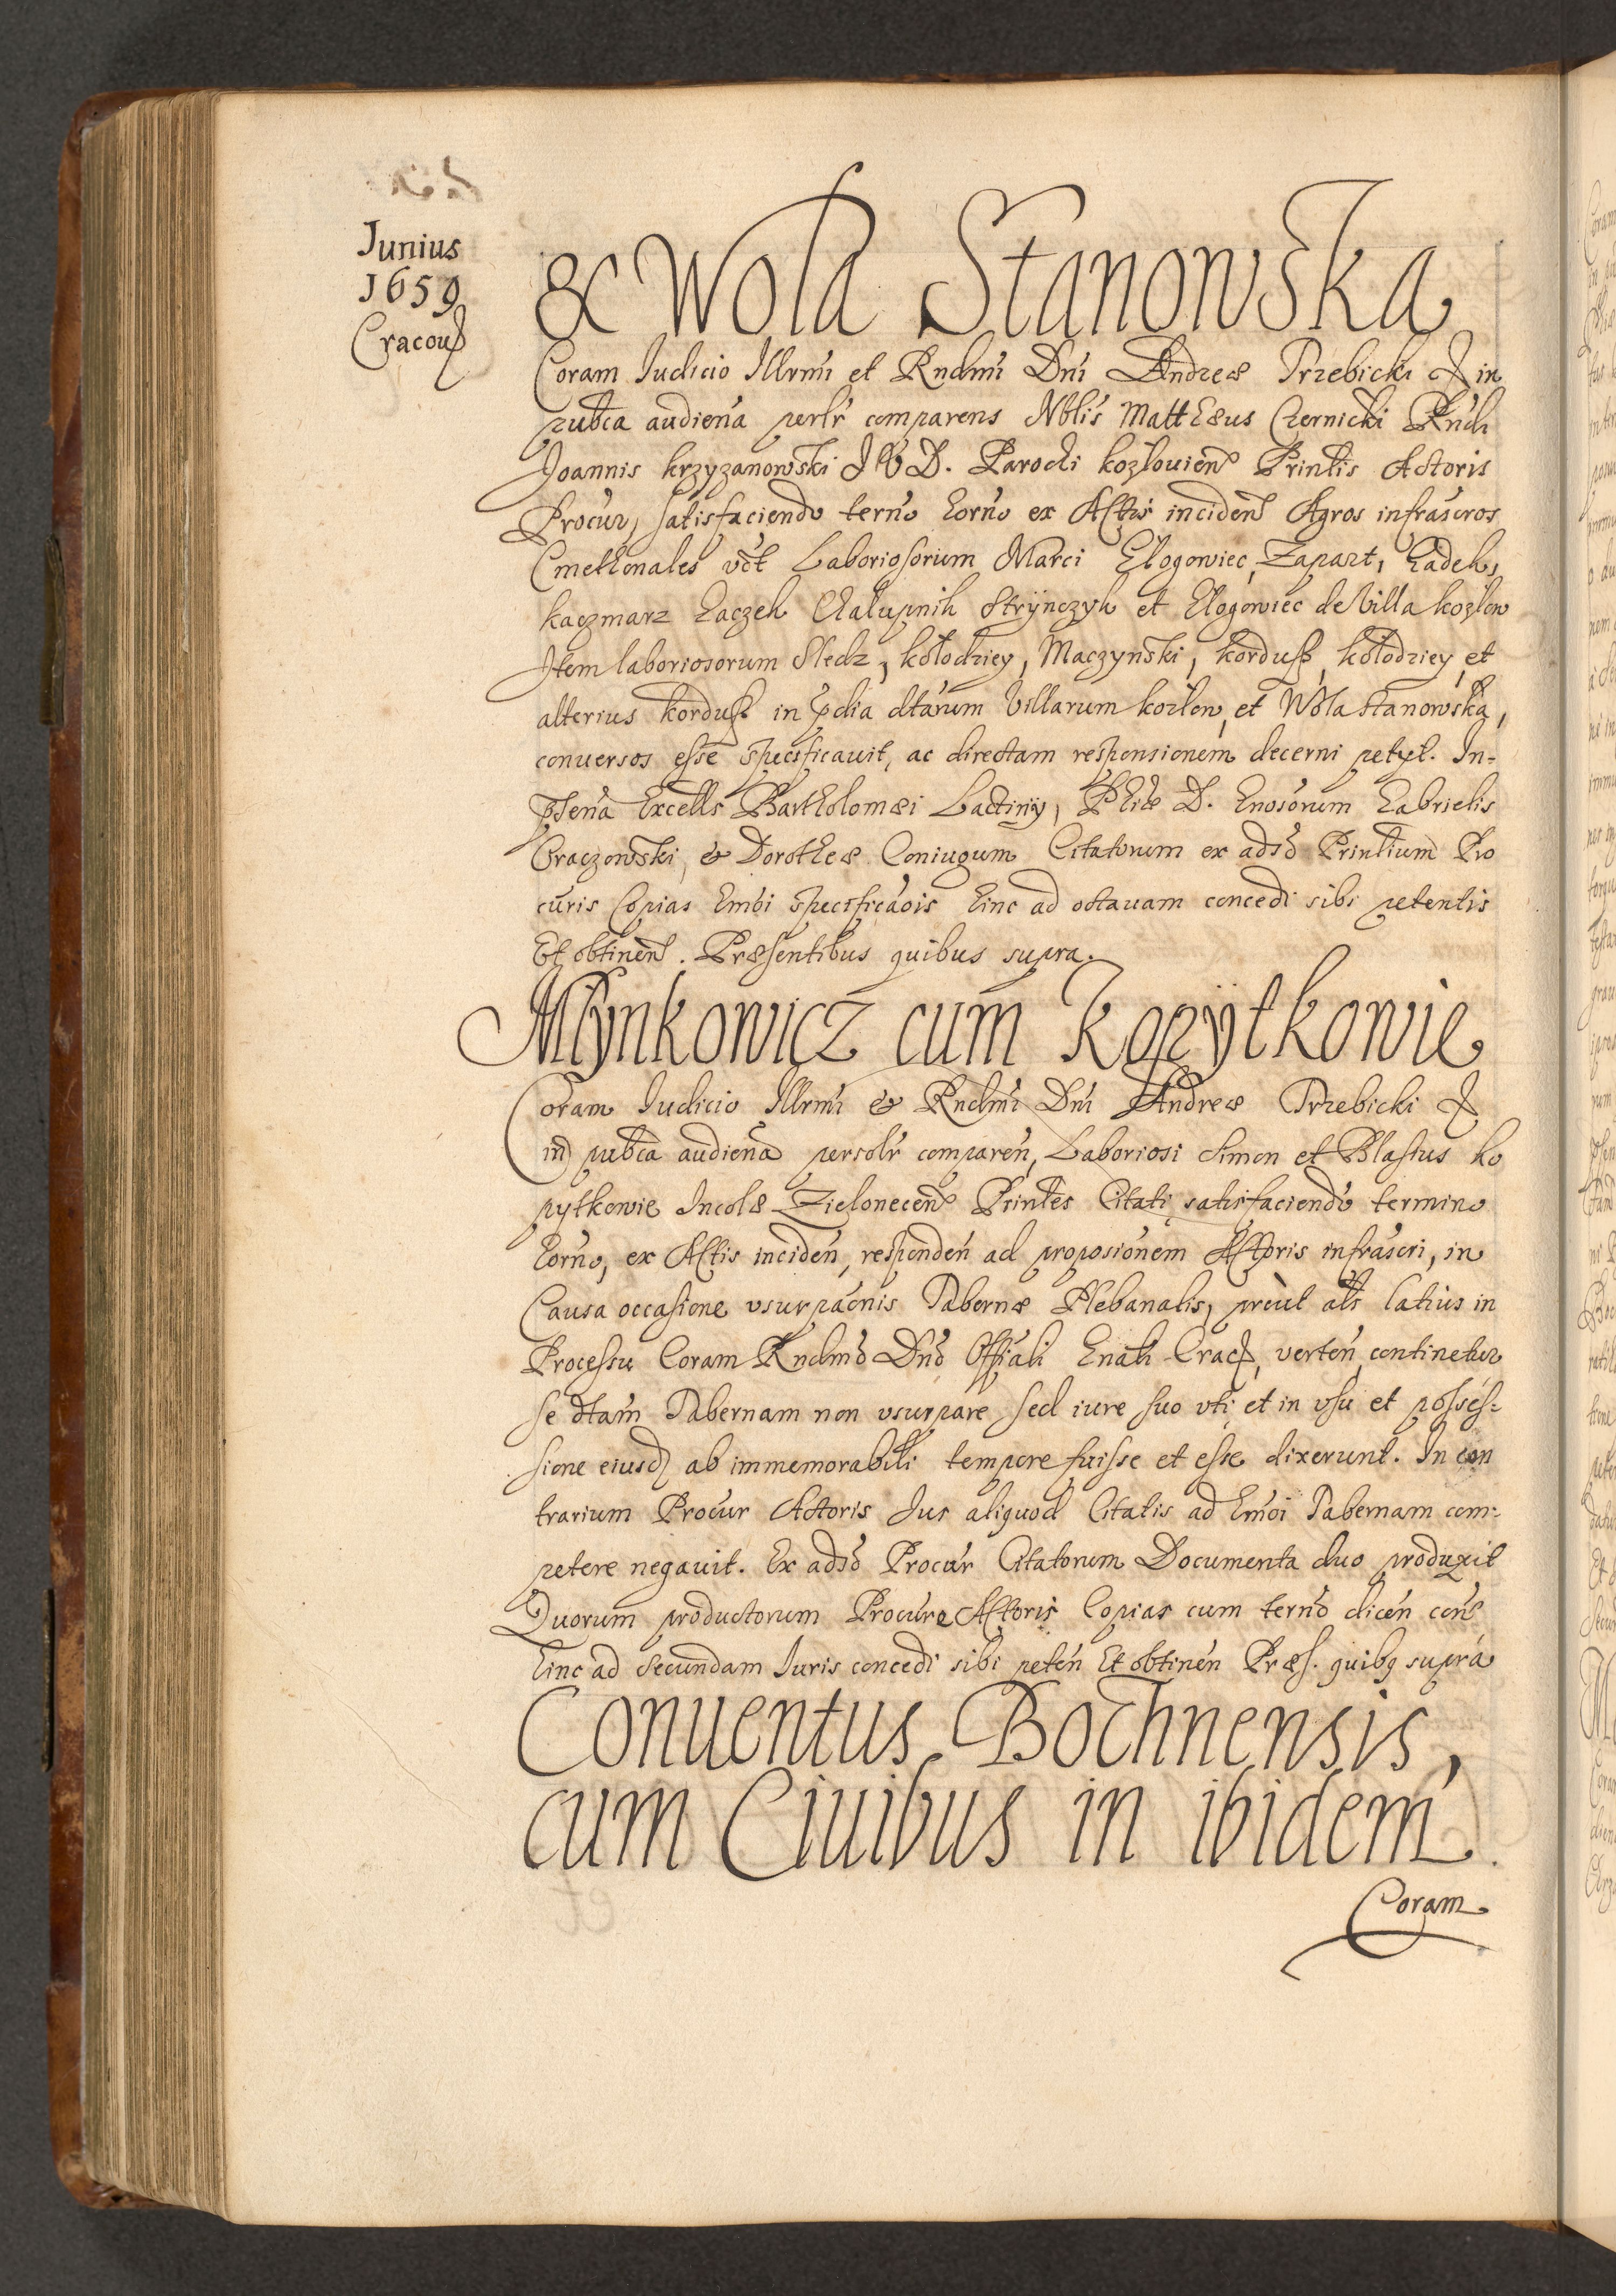 Junius
1659
Cracou
& Wola Stanowska
Coram Iudicio Illrmi et Rndmi Dni Andreæ Trzebicki in
pubca audiena perlr comparens Nblis Matthæus Czernicki Rndi
Joannis Krzyzanowski I V D. Parochi Kozlouien Printis Actoris
Procur, satisfaciendo terno horno ex Actis inciden Agros infrascros
Cmethonales vct Laboriosorum Marci Głogowiec, Zapart, Gadek,
Kaczmarz Zaczek Chałupnik Strynczyk et Głogowiec de Villa Kozlow
Item laboriosorum Sledz, Kołodziey, Maczynski, Korduss, Kołodziey, et
alterius Korduss in pdia dtarum Villarum Kozlow, et Wola Stanowska,
conuersos esse specificauit, ac directam responsionem decerni petyt. In-
psena Excells Bartholomæi Lactinij, Phiæ D. Gnosorum Gabrielis
Graczowski, & Dorotheæ Coniugum Citatorum ex adso Printium Pro
curis Copias hmoi specificaois hinc ad octauam concedi sibi petentis
Et obtinen. Præsentibus quibus supra.
Młynkowicz cum Kopÿtkowie
Coram Iudicio Illrmi & Rndmi Dni Andreæ Trzebicki
in pubca audiena persolr comparen, Laboriosi Simon et Blasius Ko
pytkowie Incolæ Zielonecen Printes Citati satisfaciendo termino
horno, ex Actis inciden, responden ad proposionem Actoris infrascri, in
Causa occasione vsurpaonis Tabernæ Plebanalis, prout als latius in
Processu Coram Rndmo Dno Offiali Gnali Crac, verten, continetur
se dtam Tabernam non vsurpare sed iure suo vti et in vsu et posses-
sione eiusd ab immemorabili tempore fuisse et esse dixerunt. In con
trarium Procur Actoris Ius aliquod Citatis ad hmoi Tabernam com-
petere negauit. Ex adso Procur Citatorum Documenta duo produxit
Quorum productorum Procure Actoris Copias cum terno dicen con
hinc ad Secundam Iuris concedi sibi peten Et obtinen Præs. quibq supra
Conuentus Bochnensis,
cum Ciuibus in ibidem.
Coram